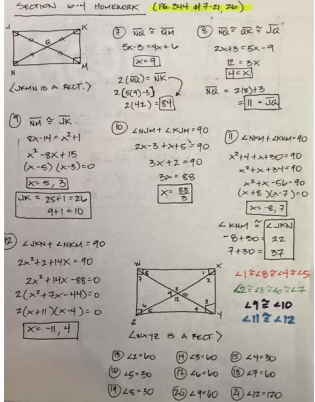 SECTION 6-4 HOMEWORK (PG. 344 #7-21, 26)
J K
Q
N M
⟨JKMN IS A RECT.⟩
⑦ NQ ≅ QM
5x-3=4x+6
x=9
2(NQ) = NK
2[5(9)-3]
2(42) = 84
⑧ NQ ≅ QK ≅ JQ
2x+3=5x-9
12=3x
4=x
NQ = 2(8)+3
= 11 = JQ
⑨ NM ≅ JK
8x-14=x²+1
x²-8x+15
(x-5)(x-3)=0
x=5,3
JK= 25+1=26
9+1=10
⑩ ∠NJM+∠KJM=90
2x-3+x+5=90
3x+2=90
3x=88
x=88/3
⑪ ∠NKM+∠KNM=90
x²+4+x+30=90
x²+x+34=90
x²+x-56=90
(x+8)(x-7)=0
x=-8,7
∠KNM ≅ ∠JKN
-8+30= 22
7+30= 37
12 ∠JKN+∠NKM=90
2x²+2+14x=90
2x²+14x-88=0
2(x²+7x-44)=0
2(x+11)(x-4)=0
x=-11,4
W X
8 1
7 2
9
10
6 3
5 4
Z Y
⟨WXYZ IS A RECT.⟩
∠1≅∠8≅∠4≅∠5
∠2≅∠3≅∠6≅∠7
∠9≅∠10
∠11≅∠12
⑬ ∠2=60 ⑭ ∠3=60 ⑮ ∠4=30
⑯ ∠5=30 ⑰ ∠6=60 ⑱ ∠7=60
⑲ ∠8=30 ⑳ ∠9=60 ㉑ ∠12=120